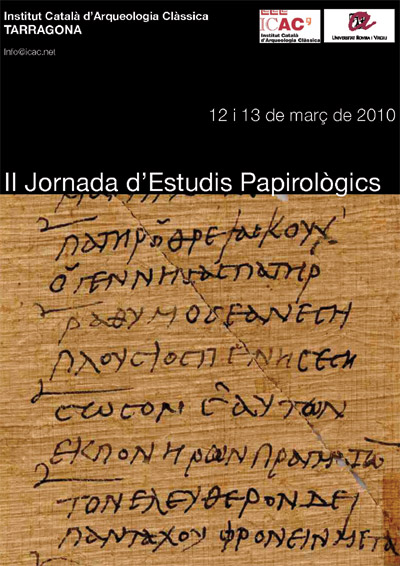 Institut Català d'Arqueologia Clàssica
TARRAGONA
Info@icac.net
ICAC
Institut Català
d'Arqueologia Clàssica
UNIVERSITAT ROVIRA I VIRGILI
12 i 13 de març de 2010
II Jornada d'Estudis Papirològics
ΠΑΤΗΡΟΘΡΕΨΑCΚΟΥΧ
ΟΓΕΝΝΗCΑCΠΑΤΗΡ
ΡΑΘΥΜΟCΕΑΝΕCΗ
ΠΛΟΥCΙΟCΠΕΝΗCΕCΗ
ΕΚΠΟΝΗΡΩΝ
ΤΟΝΕΛΕΥΘΕΡΟΝΔΕΙ
ΠΑΝΤΑΧΟΥ ΦΡΟΝΕΙΝΜΕΓΑ